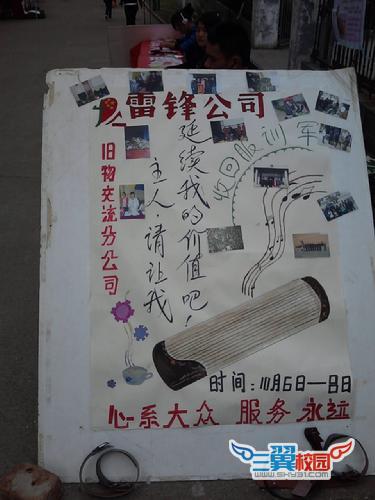 雷锋公司
旧物交流分公司
军训服回收
主人,请让我
延续我的价值吧!
时间:11月6日—8日
心系大众 服务永远
三翼校园
www.sky31.com